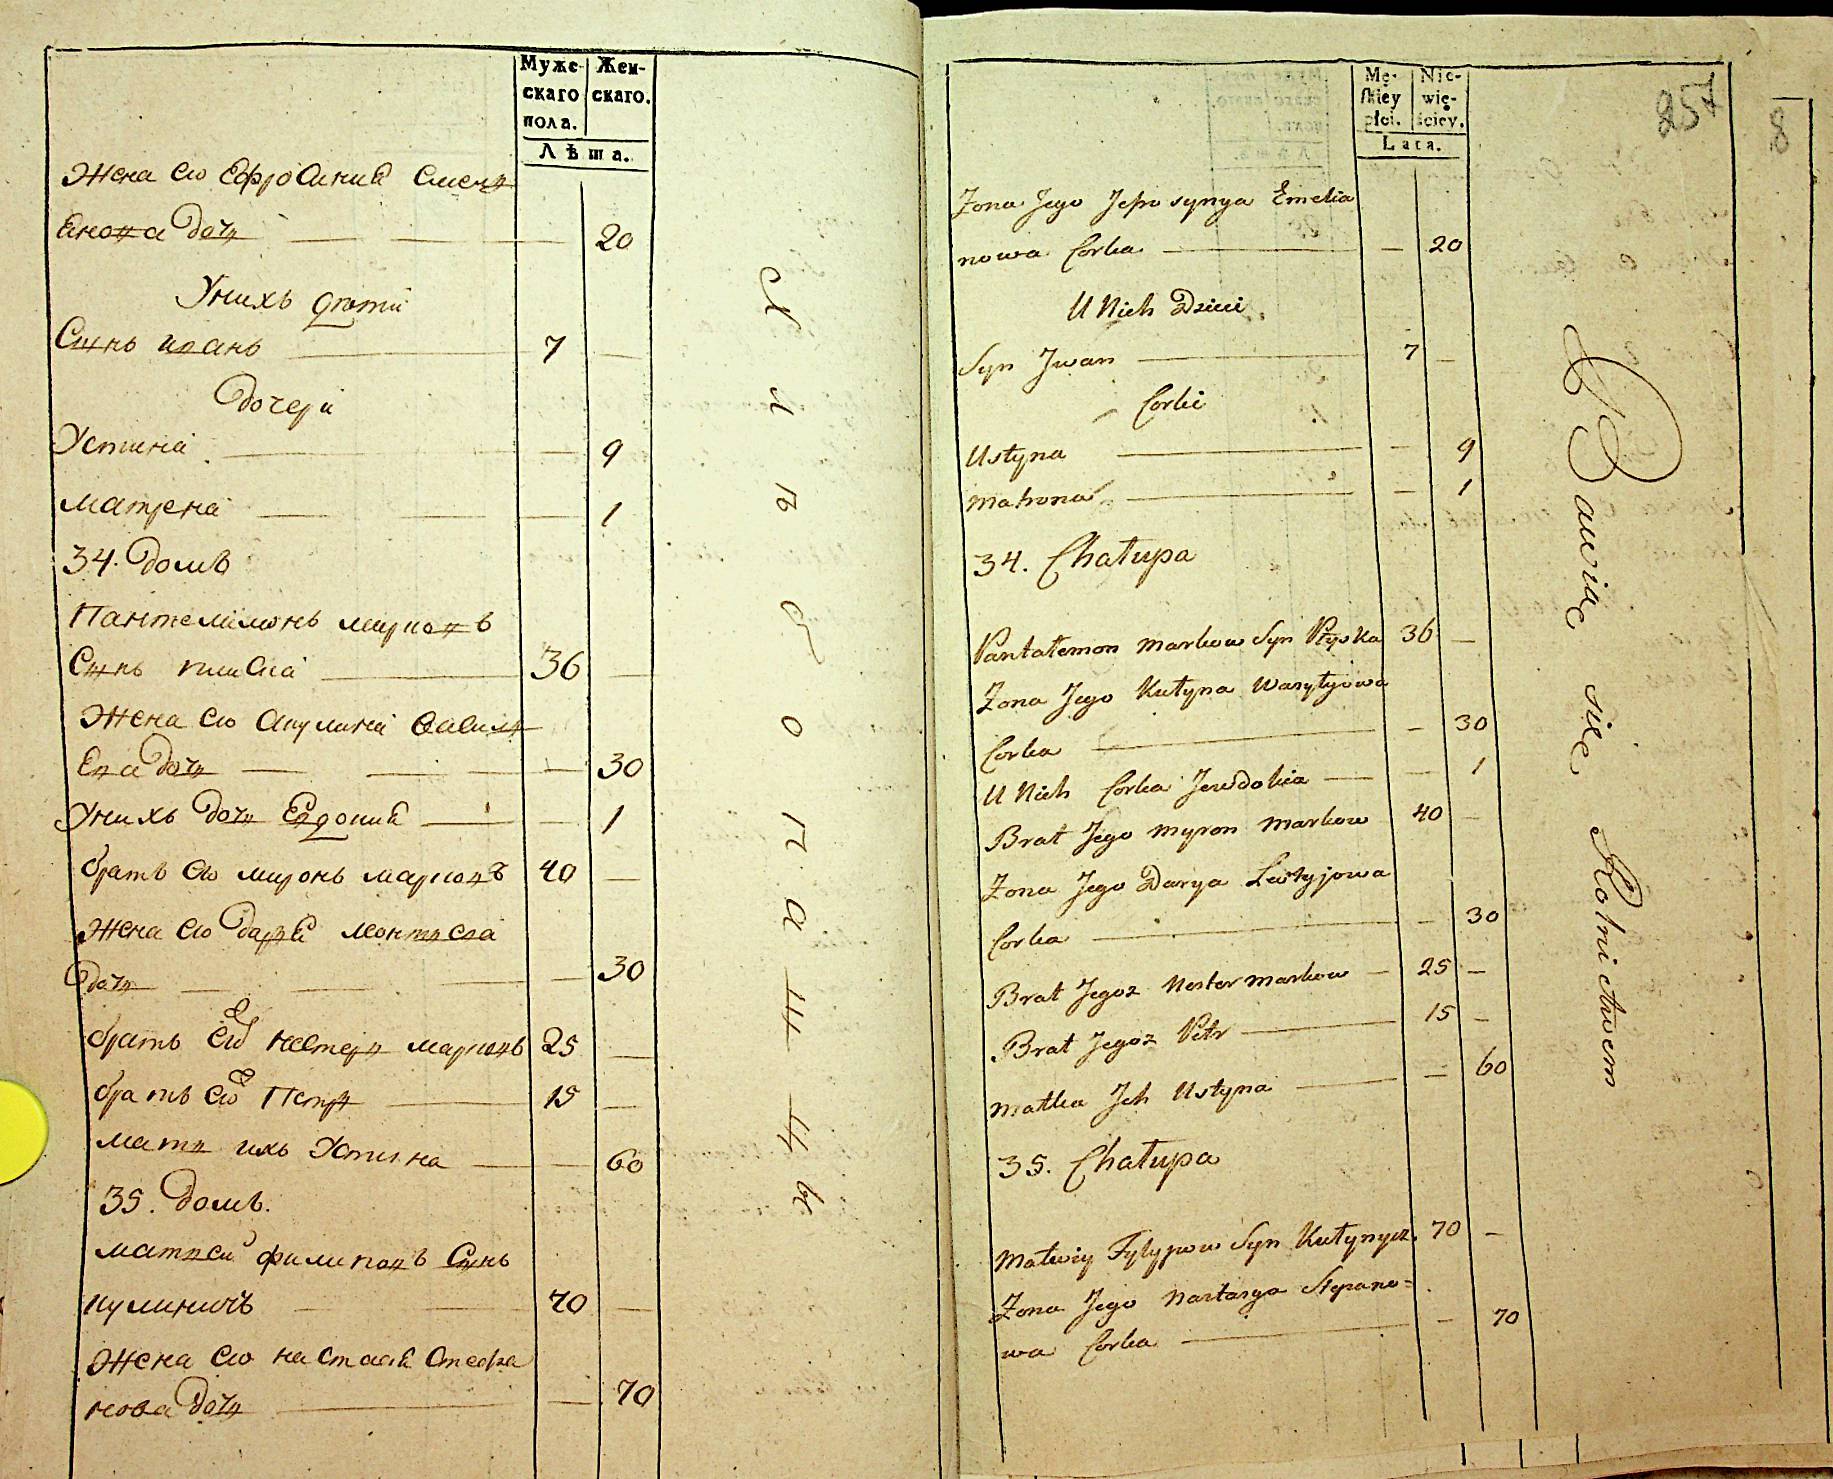 Муже-
скаго
пола.
Жен-
скаго.
Лѣта.
Жена его Ефросиния Емель
янова дочь — — — 20
У нихъ дѣти
Сынъ иванъ — 7 —
дочери
Устиния — — 9
матрена — — — 1
34. домъ
Пантелимонъ марковъ
Сынъ плиска — 36 —
Жена его Акулина Васил
Ева дочь — — — — 30
У нихъ дочь Евдокия — — 1
братъ его миронъ марковъ 40 —
Жена его дария леонтиева
дочь — — — — 30
братъ его нестеръ марковъ 25 —
братъ его Петръ — 15 —
мать ихъ Устина — — 60
35. домъ.
матвей филиповъ Сынъ
кулиничъ — — 70 —
Жена его настасия Стефа
нова дочь — — 70
Хлебопашцы
Mę-
skiey
płci.
Nie-
wie-
ściey.
Lata.
257
8
Zona Jego Jefrosynya Emelia
nowa Corka — — 20
U Nich Dzieci
Syn Jwan — 7 —
Corki
Ustyna — — 9
Matrona — — 1
34. Chałupa
Pantałemon Markow Syn Płyska 36 —
Zona Jego Kułyna Wasylyjowa
Corka — — 30
U Nich Corka Jewdokia — — 1
Brat Jego Myron Markow 40 —
Zona Jego Darya Lewtyjowa
Corka — — 30
Brat Jegoz Nester Markow — 25 —
Brat Jegoz Petr — 15 —
Matka Jch Ustyna — — 60
35. Chałupa
Matwiy Fylypow Syn Kułynycz. 70 —
Zona Jego Nastasya Stepano=
wa Corka — — 70
Bawiąc się Rolnictwem